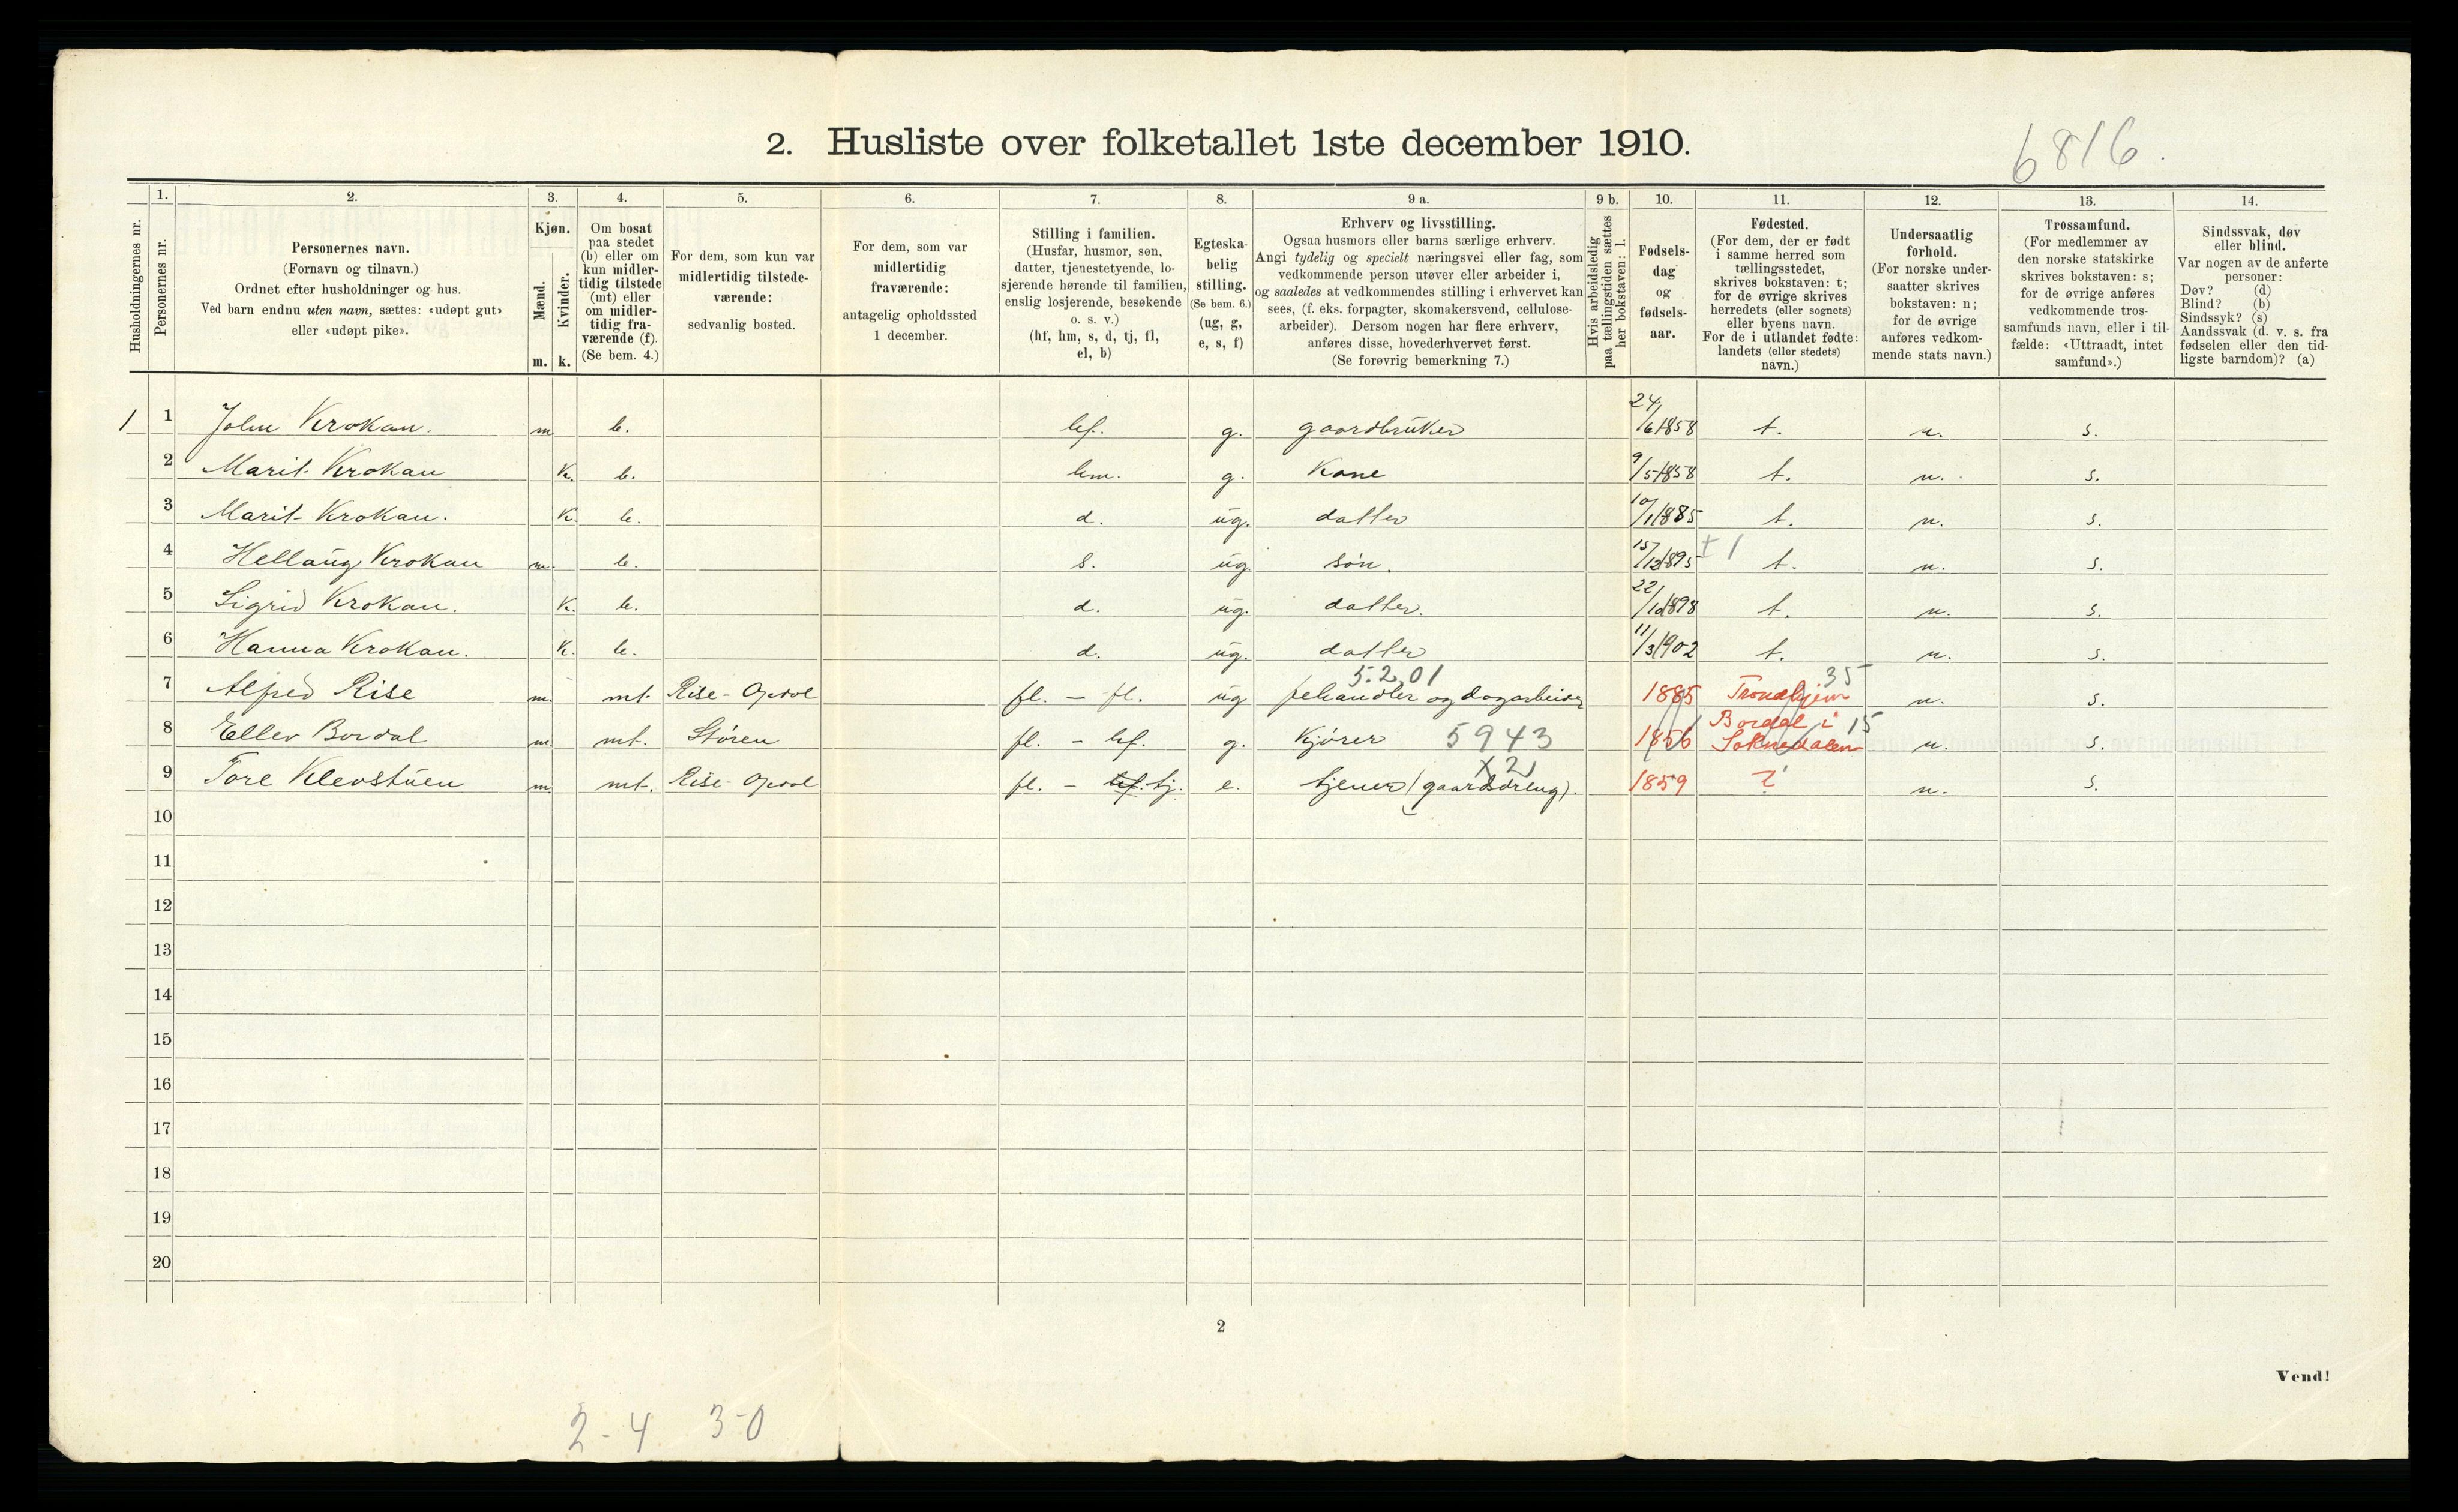 2. Husliste over folketallet 1ste december 1910.
6816.
Husholdningernes nr.
1.
Personernes nr.
2.
Personernes navn.
(Fornavn og tilnavn.)
Ordnet efter husholdninger og hus.
Ved barn endnu uten navn, sættes: «udøpt gut»
eller «udøpt pike».
3.
Kjøn.
Mænd.
Kvinder.
m. k.
4.
Om bosat
paa stedet
(b) eller om
kun midler-
tidig tilstede
(mt) eller
om midler-
tidig fra-
værende (f).
(Se bem. 4.)
5.
For dem, som kun var
midlertidig tilstede-
værende:
sedvanlig bosted.
6.
For dem, som var
midlertidig
fraværende:
antagelig opholdssted
1 december.
7.
Stilling i familien.
(Husfar, husmor, søn,
datter, tjenestetyende, lo-
sjerende hørende til familien,
enslig losjerende, besøkende
o. s. v.)
(hf, hm, s, d, tj, fl,
el, b)
8.
Egteska-
belig
stilling.
(Se bem. 6.)
(ug, g,
e, s, f)
9 a.
Erhverv og livsstilling.
Ogsaa husmors eller barns særlige erhverv.
Angi tydelig og specielt næringsvei eller fag, som
vedkommende person utøver eller arbeider i,
og saaledes at vedkommendes stilling i erhvervet kan
sees, (f. eks. forpagter, skomakersvend, cellulose-
arbeider). Dersom nogen har flere erhverv,
anføres disse, hovederhvervet først.
(Se forøvrig bemerkning 7.)
9 b.
Hvis arbeidsledig
paa tællingstiden sættes
her bokstaven: l.
10.
Fødsels-
dag
og
fødsels-
aar.
11.
Fødested.
(For dem, der er født
i samme herred som
tællingsstedet,
skrives bokstaven: t;
for de øvrige skrives
herredets (eller sognets)
eller byens navn.
For de i utlandet fødte:
landets (eller stedets)
navn.)
12.
Undersaatlig
forhold.
(For norske under-
saatter skrives
bokstaven: n;
for de øvrige
anføres vedkom-
mende stats navn.)
13.
Trossamfund.
(For medlemmer av
den norske statskirke
skrives bokstaven: s;
for de øvrige anføres
vedkommende tros-
samfunds navn, eller i til-
fælde: «Uttraadt, intet
samfund».)
14.
Sindssvak, døv
eller blind.
Var nogen av de anførte
personer:
Døv? (d)
Blind? (b)
Sindssyk? (s)
Aandssvak (d. v. s. fra
fødselen eller den tid-
ligste barndom)? (a)
1 1 John Krokan. m b. hf. g. gaardbruker 24/6 1858 t. n. s.
2 Marit Krokan k. b. hm. g. Kone 9/5 1858 t. n. s.
3 Marit Krokan. k. b. d. ug. datter 10/1 1885 t. n. s.
4 Hellaug Krokan m. b. s. ug. søn. 15/12 1895 ±1 t. n. s.
5 Sigrid Krokan. k. b. d. ug. datter. 22/10 1898 t. n. s.
6 Hanna Krokan. k. b. d. ug. datter 11/3 1902 t. n. s.
5.2.01 35
7 Alfred Rise m. mt. Rise - Opdal fl. - fl. ug fehandler og dagarbeider 1885 Trondhjem n. s.
8 Ellev Bordal m. mt. Støren fl. - hf. g. Kjører 5943 1856 Bordal i Soknedalen 15 n. s.
x2
9 Tore Klevstuen m. mt. Rise - Opdal fl. - hf. tj. e. tjener (gaardsdreng). 1859 ? n. s.
10
11
12
13
14
15
16
17
18
19
20
2
Vend!
2-4 3-0